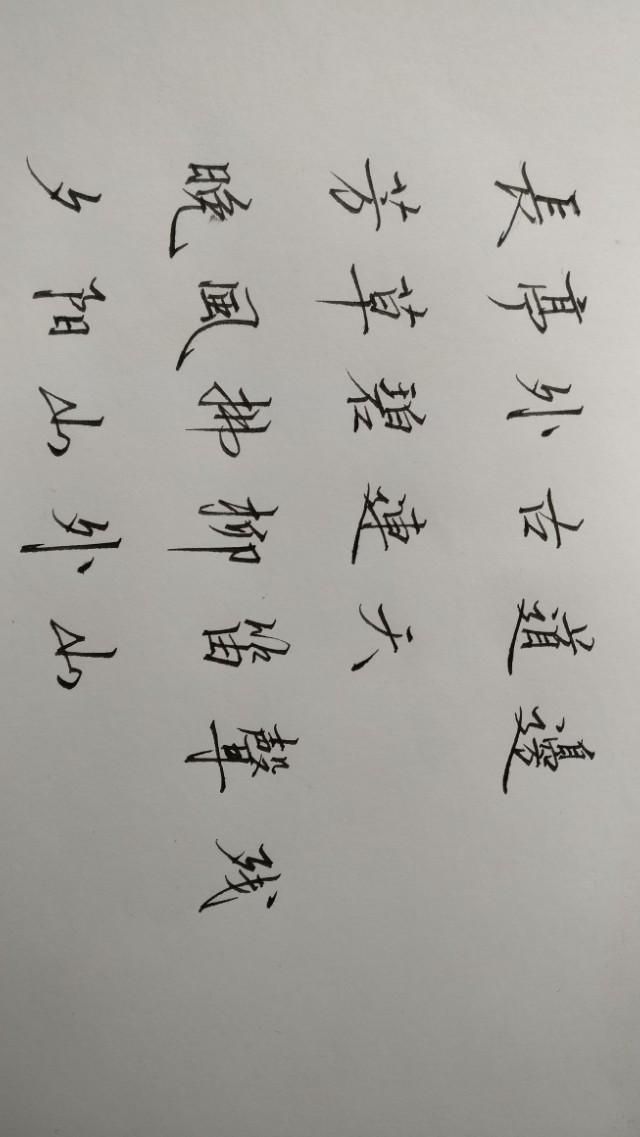 長亭外古道邊
芳草碧連天
晚風拂柳笛聲残
夕阳山外山